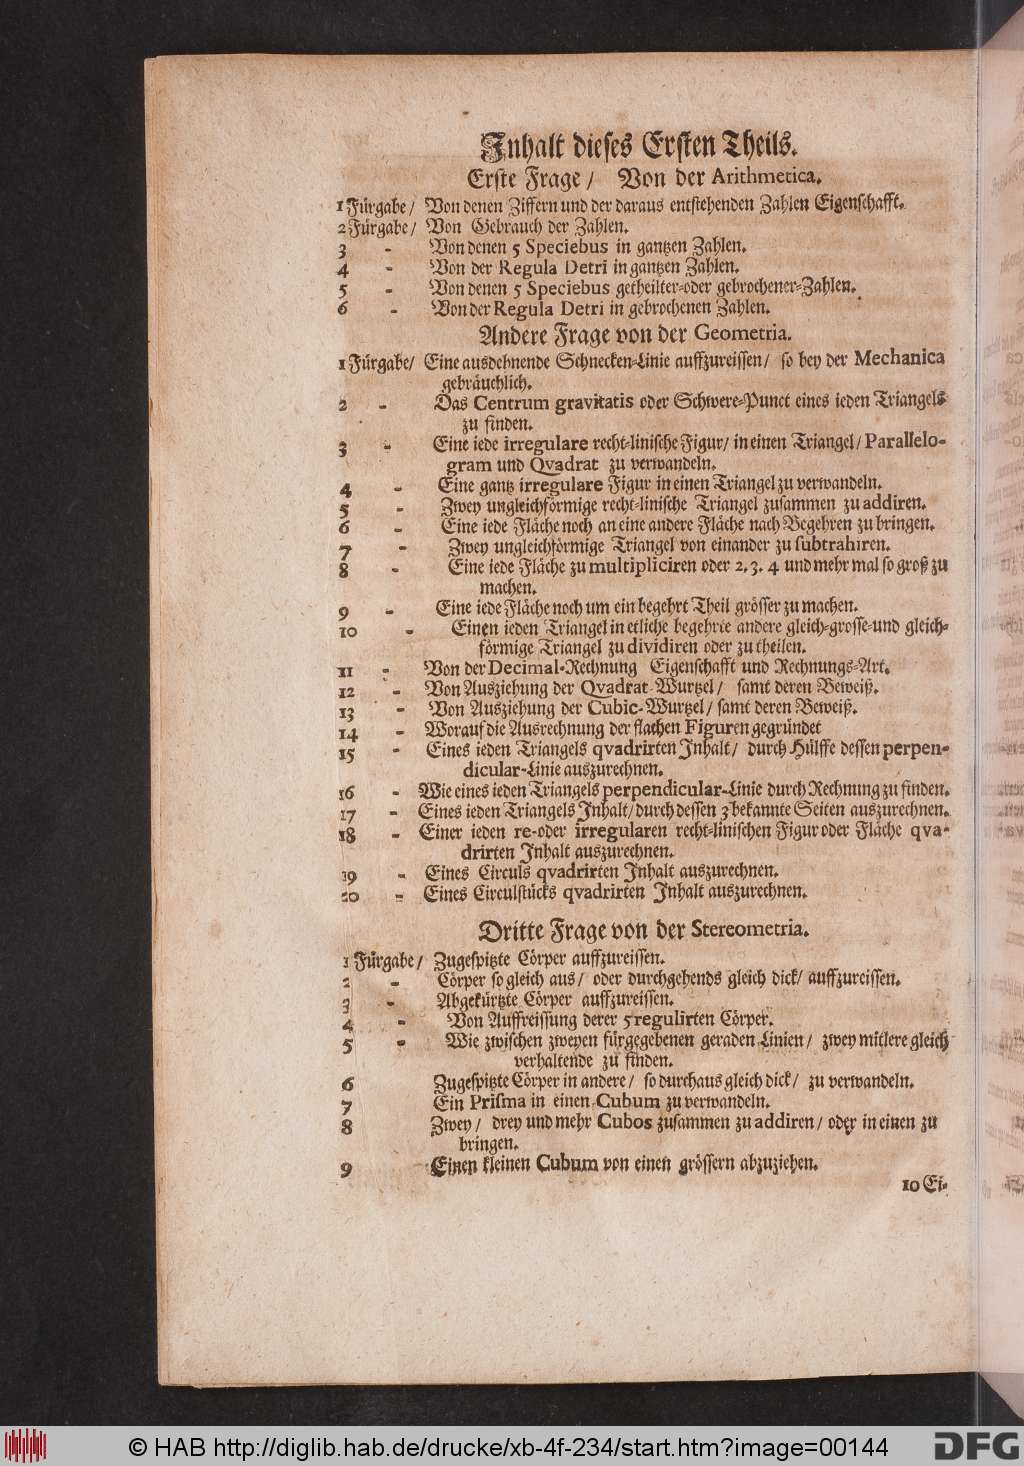 Inhalt dieses Ersten Theils.
Erste Frage / Von der Arithmetica.
1 Fürgabe / Von denen Ziffern und der daraus entstehenden Zahlen Eigenschafft.
2 Fürgabe / Von Gebrauch der Zahlen.
3 - Von denen 5 Speciebus in gantzen Zahlen.
4 - Von der Regula Detri in gantzen Zahlen.
5 - Von denen 5 Speciebus getheilter-oder gebrochener-Zahlen.
6 - Von der Regula Detri in gebrochenen Zahlen.
Andere Frage von der Geometria.
1 Fürgabe / Eine ausdehnende Schnecken-Linie auffzureissen / so bey der Mechanica
gebräuchlich.
2 - Das Centrum gravitatis oder Schwere-Punct eines ieden Triangels
zu finden.
3 - Eine iede irregulare recht-linische Figur / in einen Triangel / Parallelo-
gram und Qvadrat zu verwandeln.
4 - Eine gantz irregulare Figur in einen Triangel zu verwandeln.
5 - Zwey ungleichförmige recht-linische Triangel zusammen zu addiren.
6 - Eine iede Fläche noch an eine andere Fläche nach Begehren zu bringen.
7 - Zwey ungleichförmige Triangel von einander zu subtrahiren.
8 - Eine iede Fläche zu multipliciren oder 2. 3. 4 und mehr mal so groß zu
machen.
9 - Eine iede Fläche noch um ein begehrt Theil grösser zu machen.
10 - Einen ieden Triangel in etliche begehrte andere gleich-grosse-und gleich-
förmige Triangel zu dividiren oder zu theilen.
11 - Von der Decimal-Rechnung Eigenschafft und Rechnungs-Art.
12 - Von Ausziehung der Qvadrat-Wurtzel / samt deren Beweiß.
13 - Von Ausziehung der Cubic-Wurtzel / samt deren Beweiß.
14 - Worauf die Ausrechnung der flachen Figuren gegründet
15 - Eines ieden Triangels qvadrirten Inhalt / durch Hülffe dessen perpen-
dicular-Linie auszurechnen.
16 - Wie eines ieden Triangels perpendicular-Linie durch Rechnung zu finden.
17 - Eines ieden Triangels Inhalt / durch dessen 3 bekannte Seiten auszurechnen.
18 - Einer ieden re-oder irregularen recht-linischen Figur oder Fläche qva-
drirten Inhalt auszurechnen.
19 - Eines Circuls qvadrirten Inhalt auszurechnen.
20 - Eines Circulstücks qvadrirten Inhalt auszurechnen.
Dritte Frage von der Stereometria.
1 Fürgabe / Zugespitzte Cörper auffzureissen.
2 - Cörper so gleich aus / oder durchgehends gleich dick / auffzureissen.
3 - Abgekürtzte Cörper auffzureissen.
4 - Von Auffreissung derer 5 regulirten Cörper.
5 - Wie zwischen zweyen fürgegebenen geraden Linien / zwey mitlere gleich
verhaltende zu finden.
6 Zugespitzte Cörper in andere / so durchaus gleich dick / zu verwandeln.
7 Ein Prisma in einen Cubum zu verwandeln.
8 Zwey / drey und mehr Cubos zusammen zu addiren / oder in einen zu
bringen.
9 Einen kleinen Cubum von einen grössern abzuziehen.
10 Ei-
© HAB http://diglib.hab.de/drucke/xb-4f-234/start.htm?image=00144
DFG